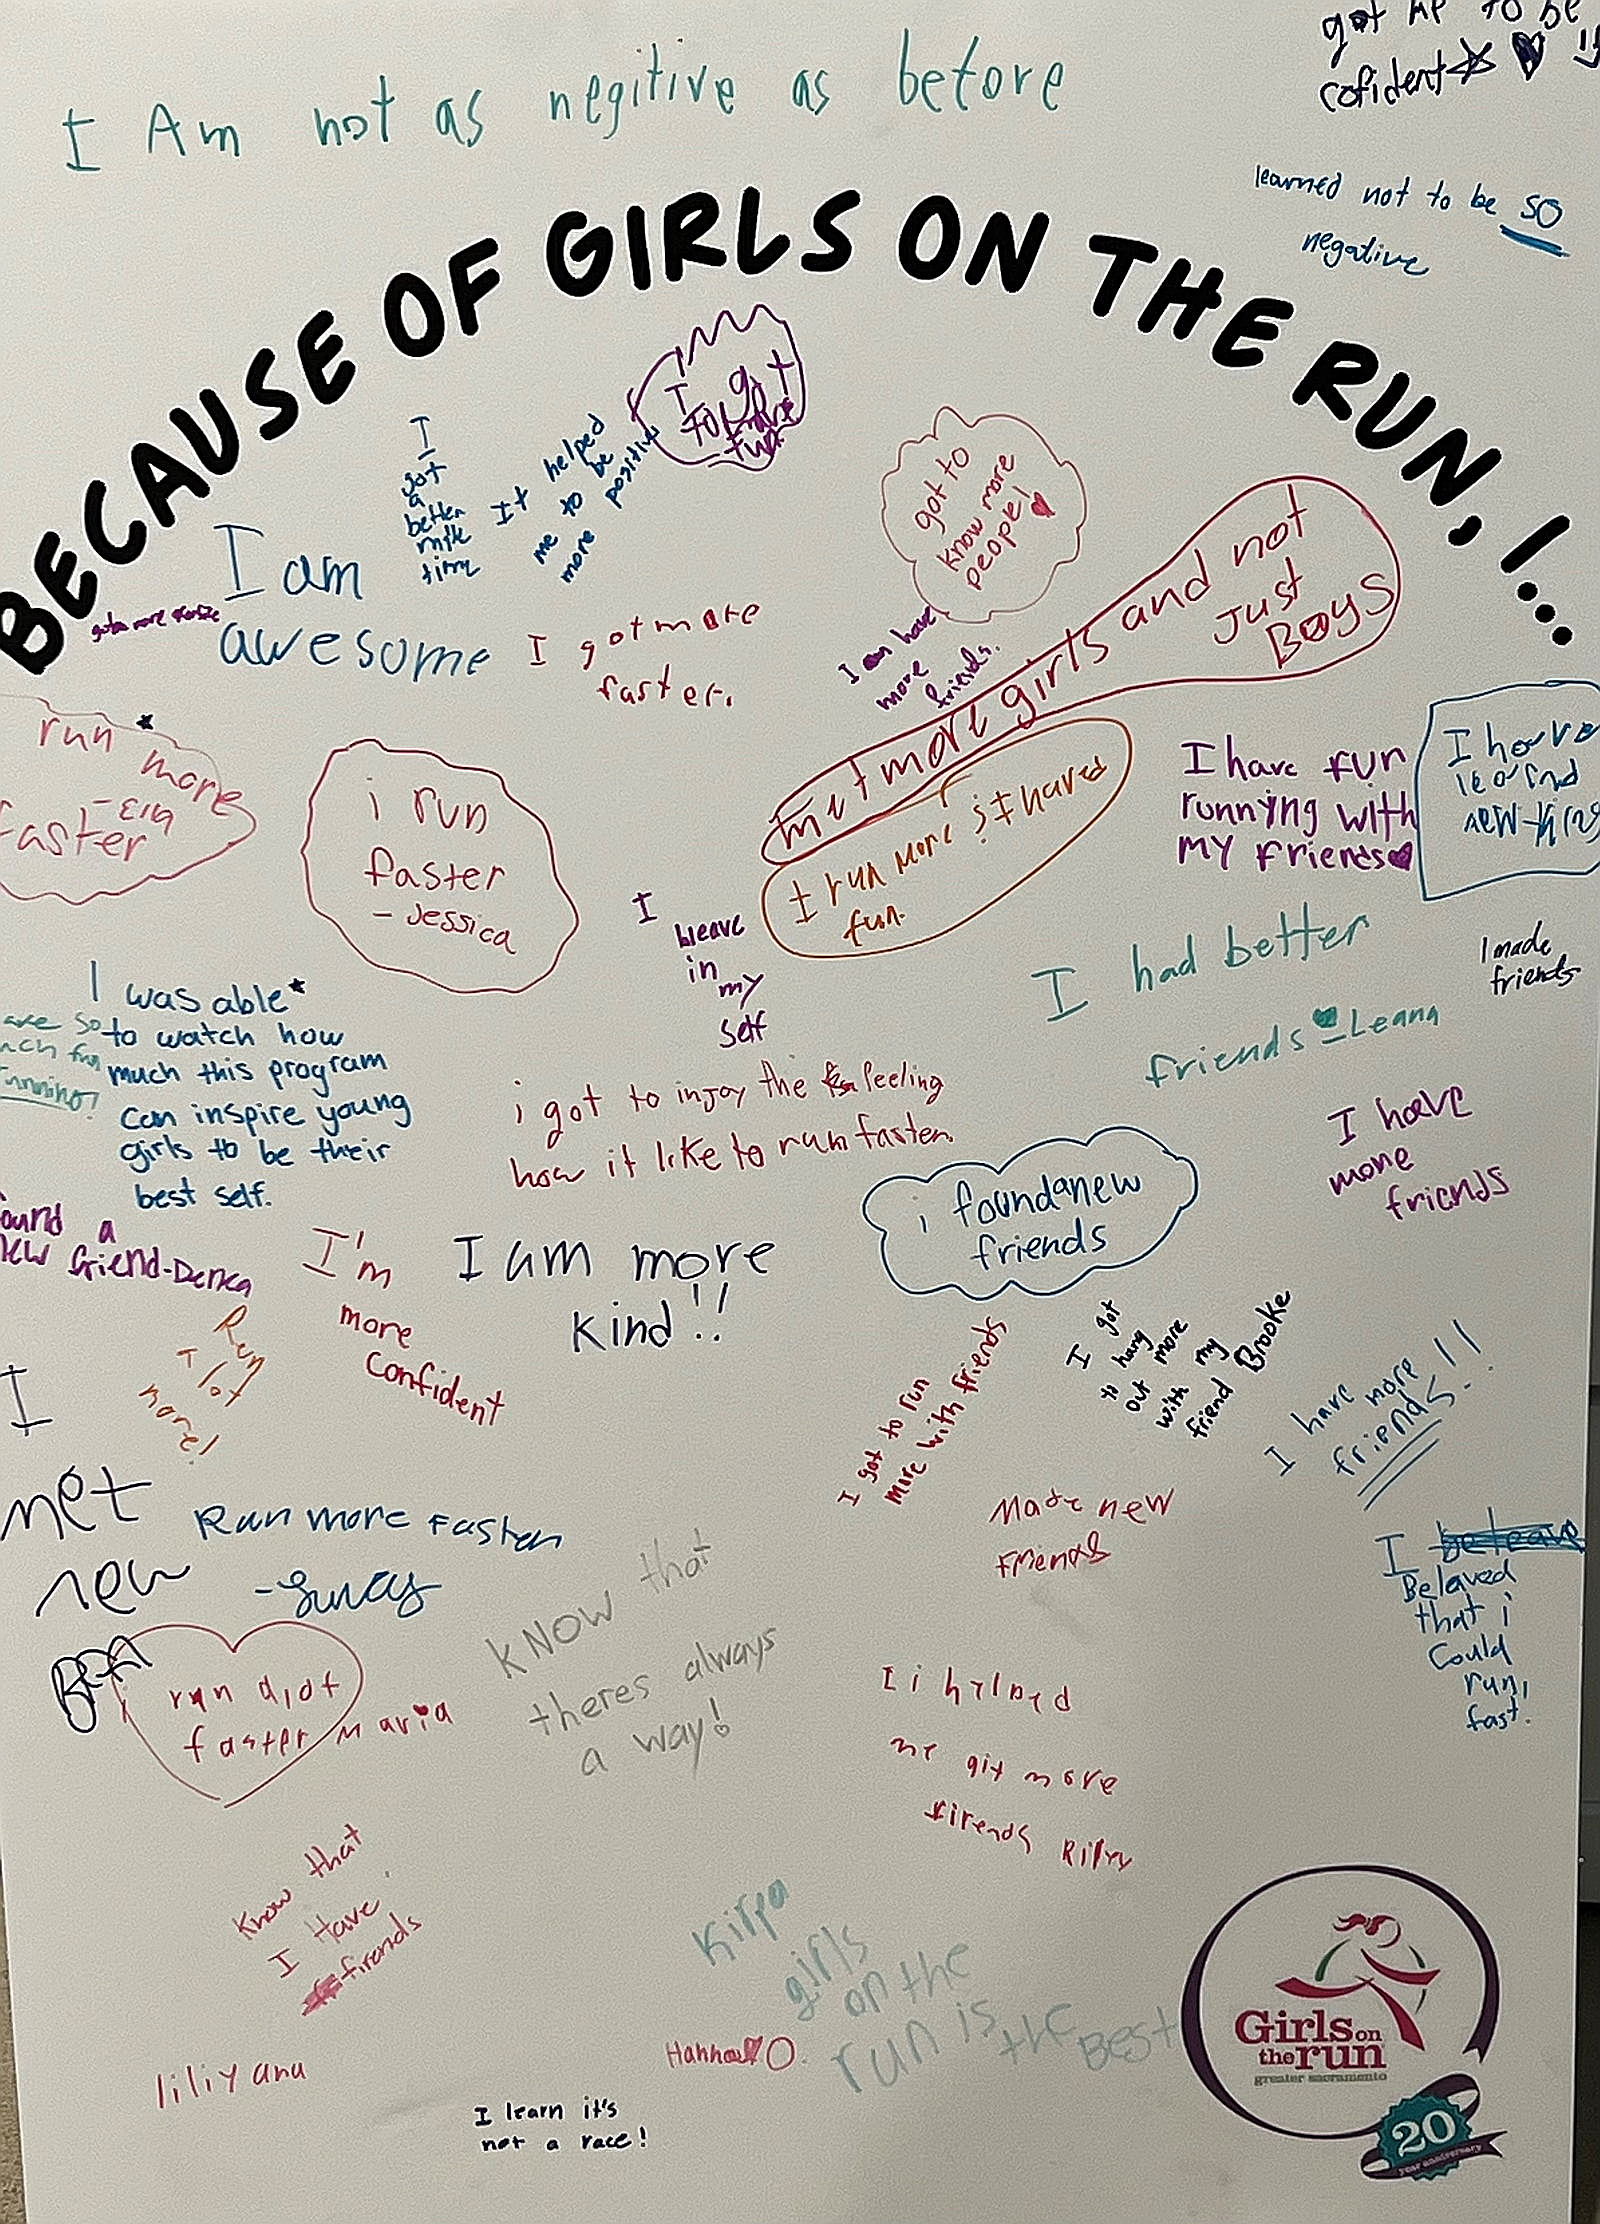 got me to be
cofident
I Am not as negitive as before
learned not to be SO
negative
BECAUSE OF GIRLS ON THE RUN, I...
I got
to have
fun
I
got
a
better
mile
time
It helped
me to be
more positive
got to
know more
people!
I am
awesome
I got more
faster.
I am have
more
friends.
met more girls and not
just
Boys
run more
faster
i run
faster
- Jessica
I run more ; I haved
fun.
I have fun
runnying with
my friends
I have
new
I
bleave
in
my
self
I had better
friends - Leana
I made
friends
I was able
to watch how
much this program
can inspire young
girls to be their
best self.
are so
fun
running!
i got to injoy the feeling
how it like to run faster.
I have
more
friends
i foundanew
friends
ound a
new friend-
I'm
more
confident
I am more
kind!!
Run
more!
I got to run
more with friends
I got
to hang
out more
with my
friend Brooke
I have more
friends!!
I
met
new
Run more faster
Made new
friends
I beleave
Belaved
that i
could
run,
fast.
KNOW that
theres always
a way!
i
run a lot
faster Maria
I i helped
me git more
firends Riley
Know that
I Have
firends
liliyana
Kirpa
girls
on the
run is the BEST
Hanna O.
I learn it's
not a race!
Girls on
the run
greater sacramento
20
year anniversary